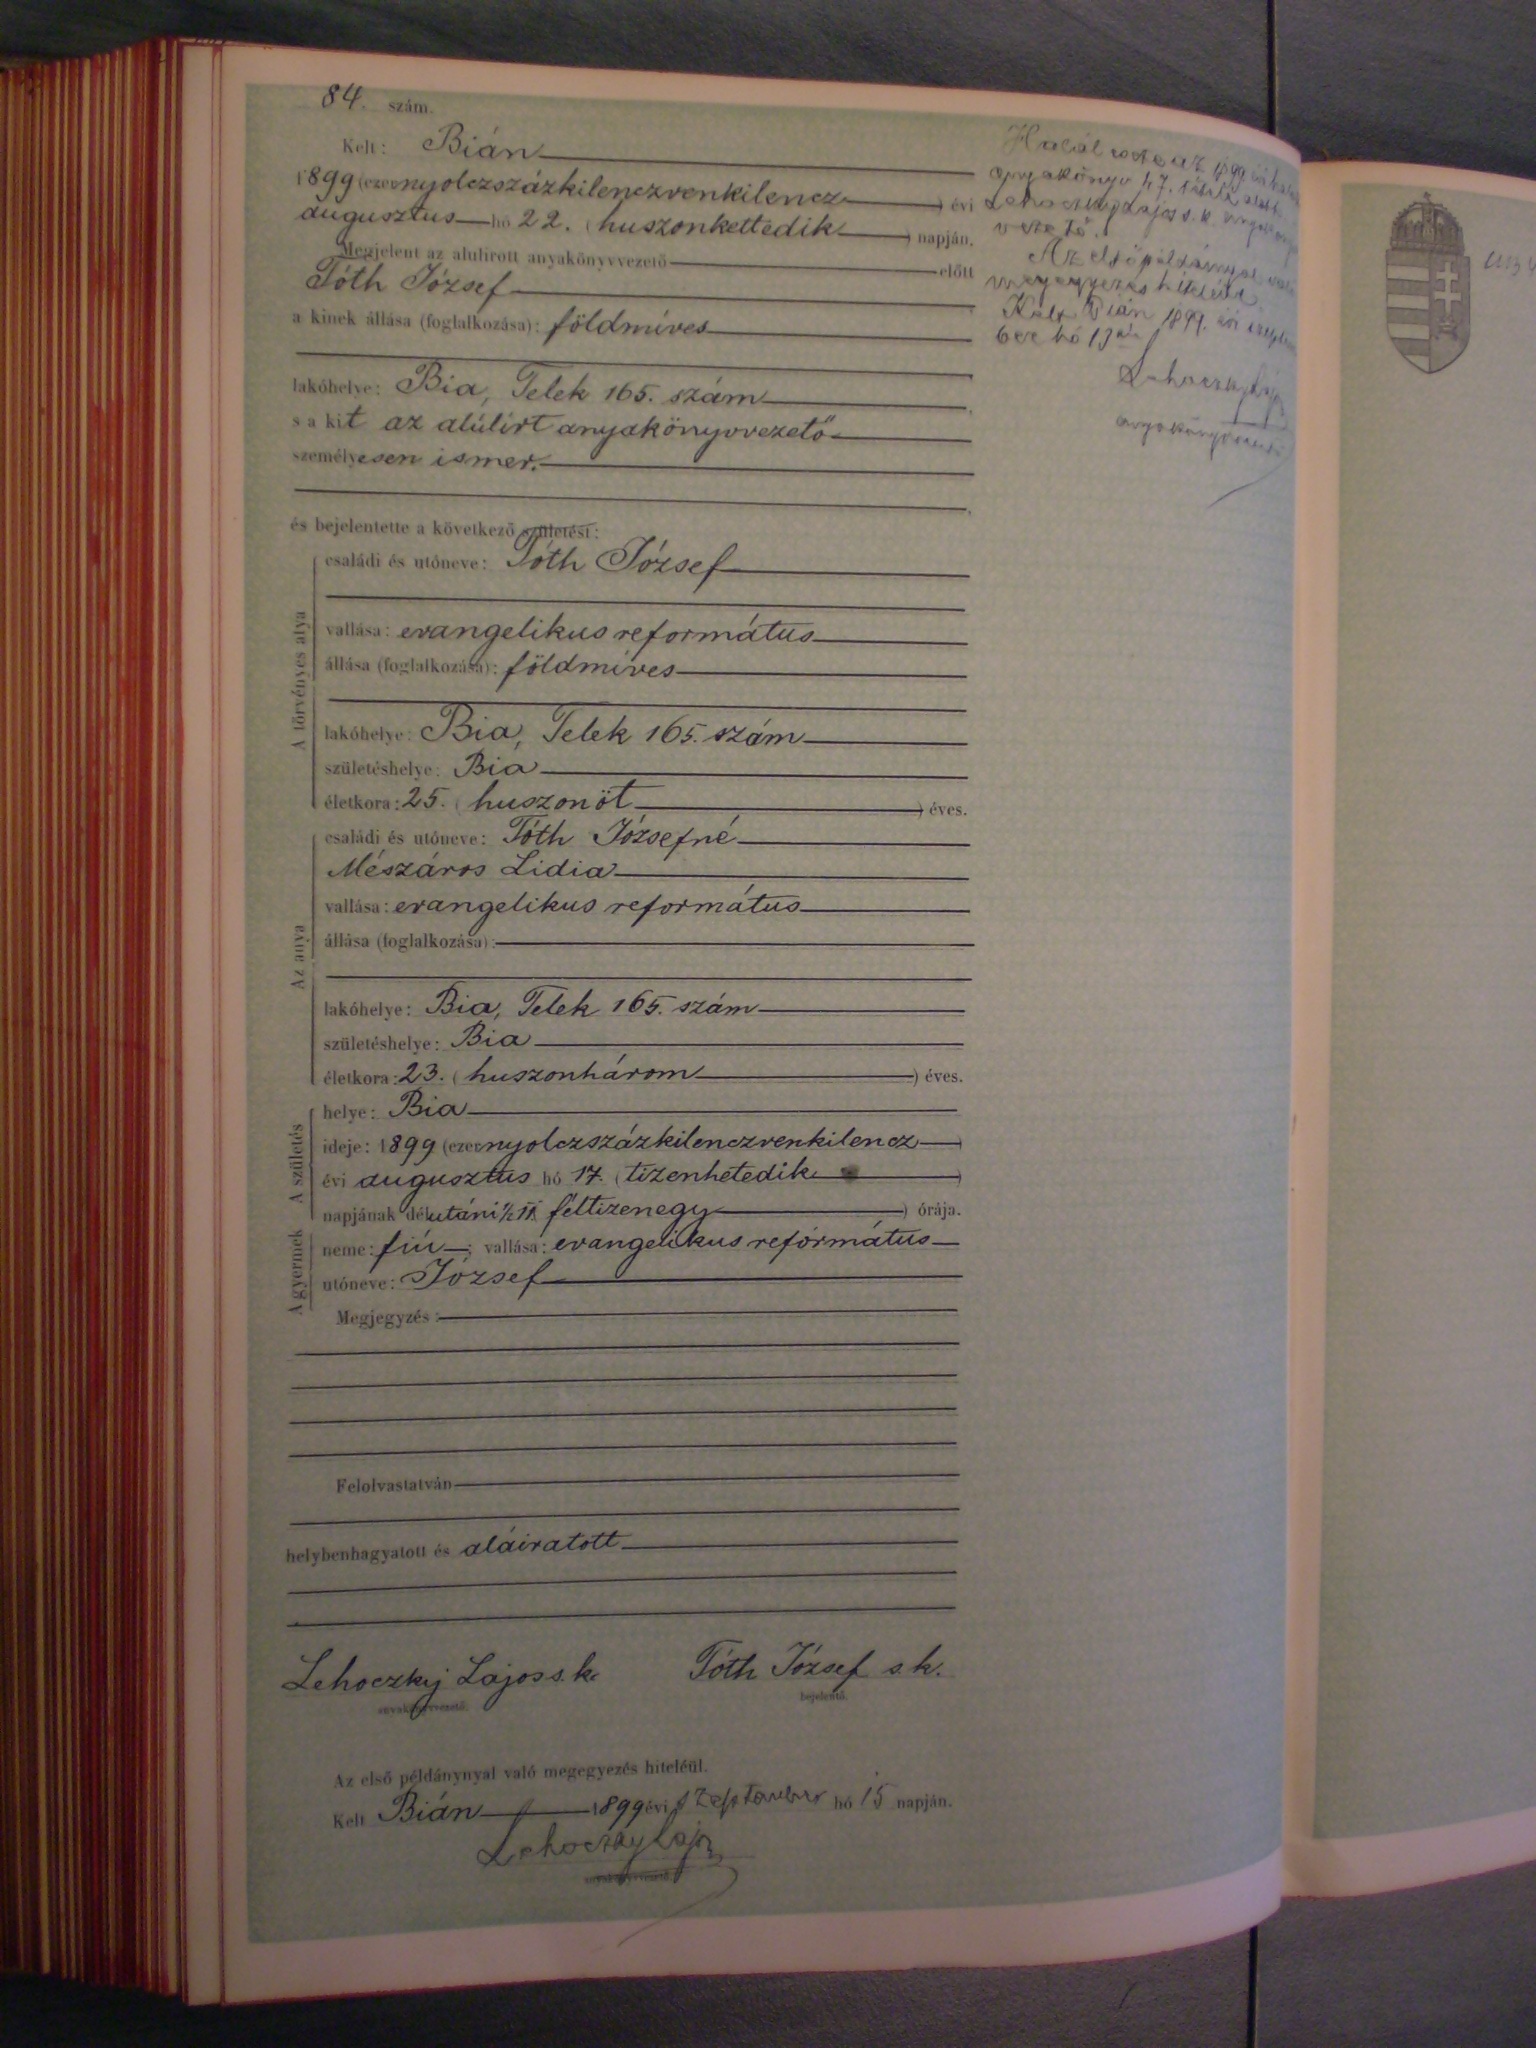 84. szám.
Kelt: Bián
1899 (ezernyolczszázkilenczvenkilencz) évi
augusztus hó 22. (huszonkettedik) napján.
Megjelent az alulirott anyakönyvvezető előtt
Tóth József
a kinek állása (foglalkozása): földmíves
lakóhelye: Bia, Telek 165. szám
s a kit az alúlírt anyakönyvvezető
személyesen ismer.
és bejelentette a következő születést:
A törvényes atya
családi és utóneve: Tóth József
vallása: evangelikus református
állása (foglalkozása): földmíves
lakóhelye: Bia, Telek 165. szám
születéshelye: Bia
életkora: 25. (huszonöt) éves.
Az anya
családi és utóneve: Tóth Józsefné
Mészáros Lidia
vallása: evangelikus református
állása (foglalkozása):
lakóhelye: Bia, Telek 165. szám
születéshelye: Bia
életkora: 23. (huszonhárom) éves.
A születés
helye: Bia
ideje: 1899 (ezernyolczszázkilenczvenkilencz)
évi augusztus hó 17. (tizenhetedik)
napjának délutáni ½ 11 (féltizenegy) órája.
A gyermek
neme: fiú; vallása: evangelikus református
utóneve: József
Megjegyzés:
Felolvastatván
helybenhagyatott és aláiratott
Lehoczky Lajos s. k. Tóth József s. k.
anyakönyvvezető. bejelentő.
Az első példánynyal való megegyezés hiteléül.
Kelt Bián 1899 évi szeptember hó 15 napján.
Lehoczky Lajos
anyakönyvvezető.
Halál az 1899 évi
anyakönyv 47. alatt
Lehoczky Lajos s. k.
vezető.
Az első példánnyal való
megegyezés hiteléül
Kelt Bián 1899. évi szeptem
ber hó 15én
Lehoczky Lajos
anyakönyvvezető